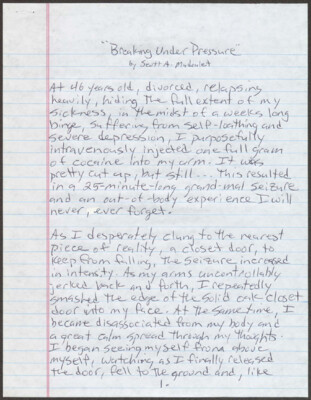 "Breaking Under Pressure"
by Scott A.
At 46 years old, divorced, relapsing
heavily, hiding the full extent of my
sickness, in the midst of a weeks long
binge, suffering from self-loathing and
severe depression, I purposefully
intravenously injected one full gram
of cocaine into my arm. It was
pretty cut up, but still... This resulted
in a 25-minute-long grand-mal seizure
and an out-of-body experience I will
never, ever forget.
As I desperately clung to the nearest
piece of reality, a closet door, to
keep from falling, the seizure increased
in intensity. As my arms uncontrollably
jerked back and forth, I repeatedly
smashed the edge of the solid oak closet
door into my face. At the same time, I
became disassociated from my body and
a great calm spread through my thoughts.
I began seeing myself from above
myself, watching as I finally released
the door, fell to the ground and, like
1-